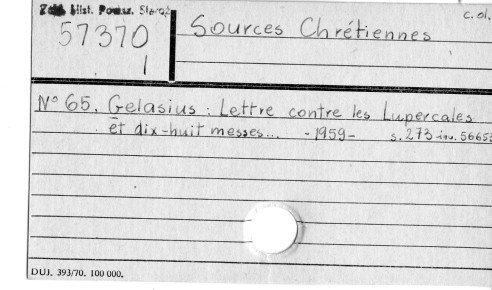 Hist. Powsz. Staroż
c. ol.
57370
1
Sources Chrétiennes
N° 65. Gelasius: Lettre contre les Lupercales
et dix-huit messes... -1959- s. 273 inw. 56653
DUJ. 393/70. 100 000.